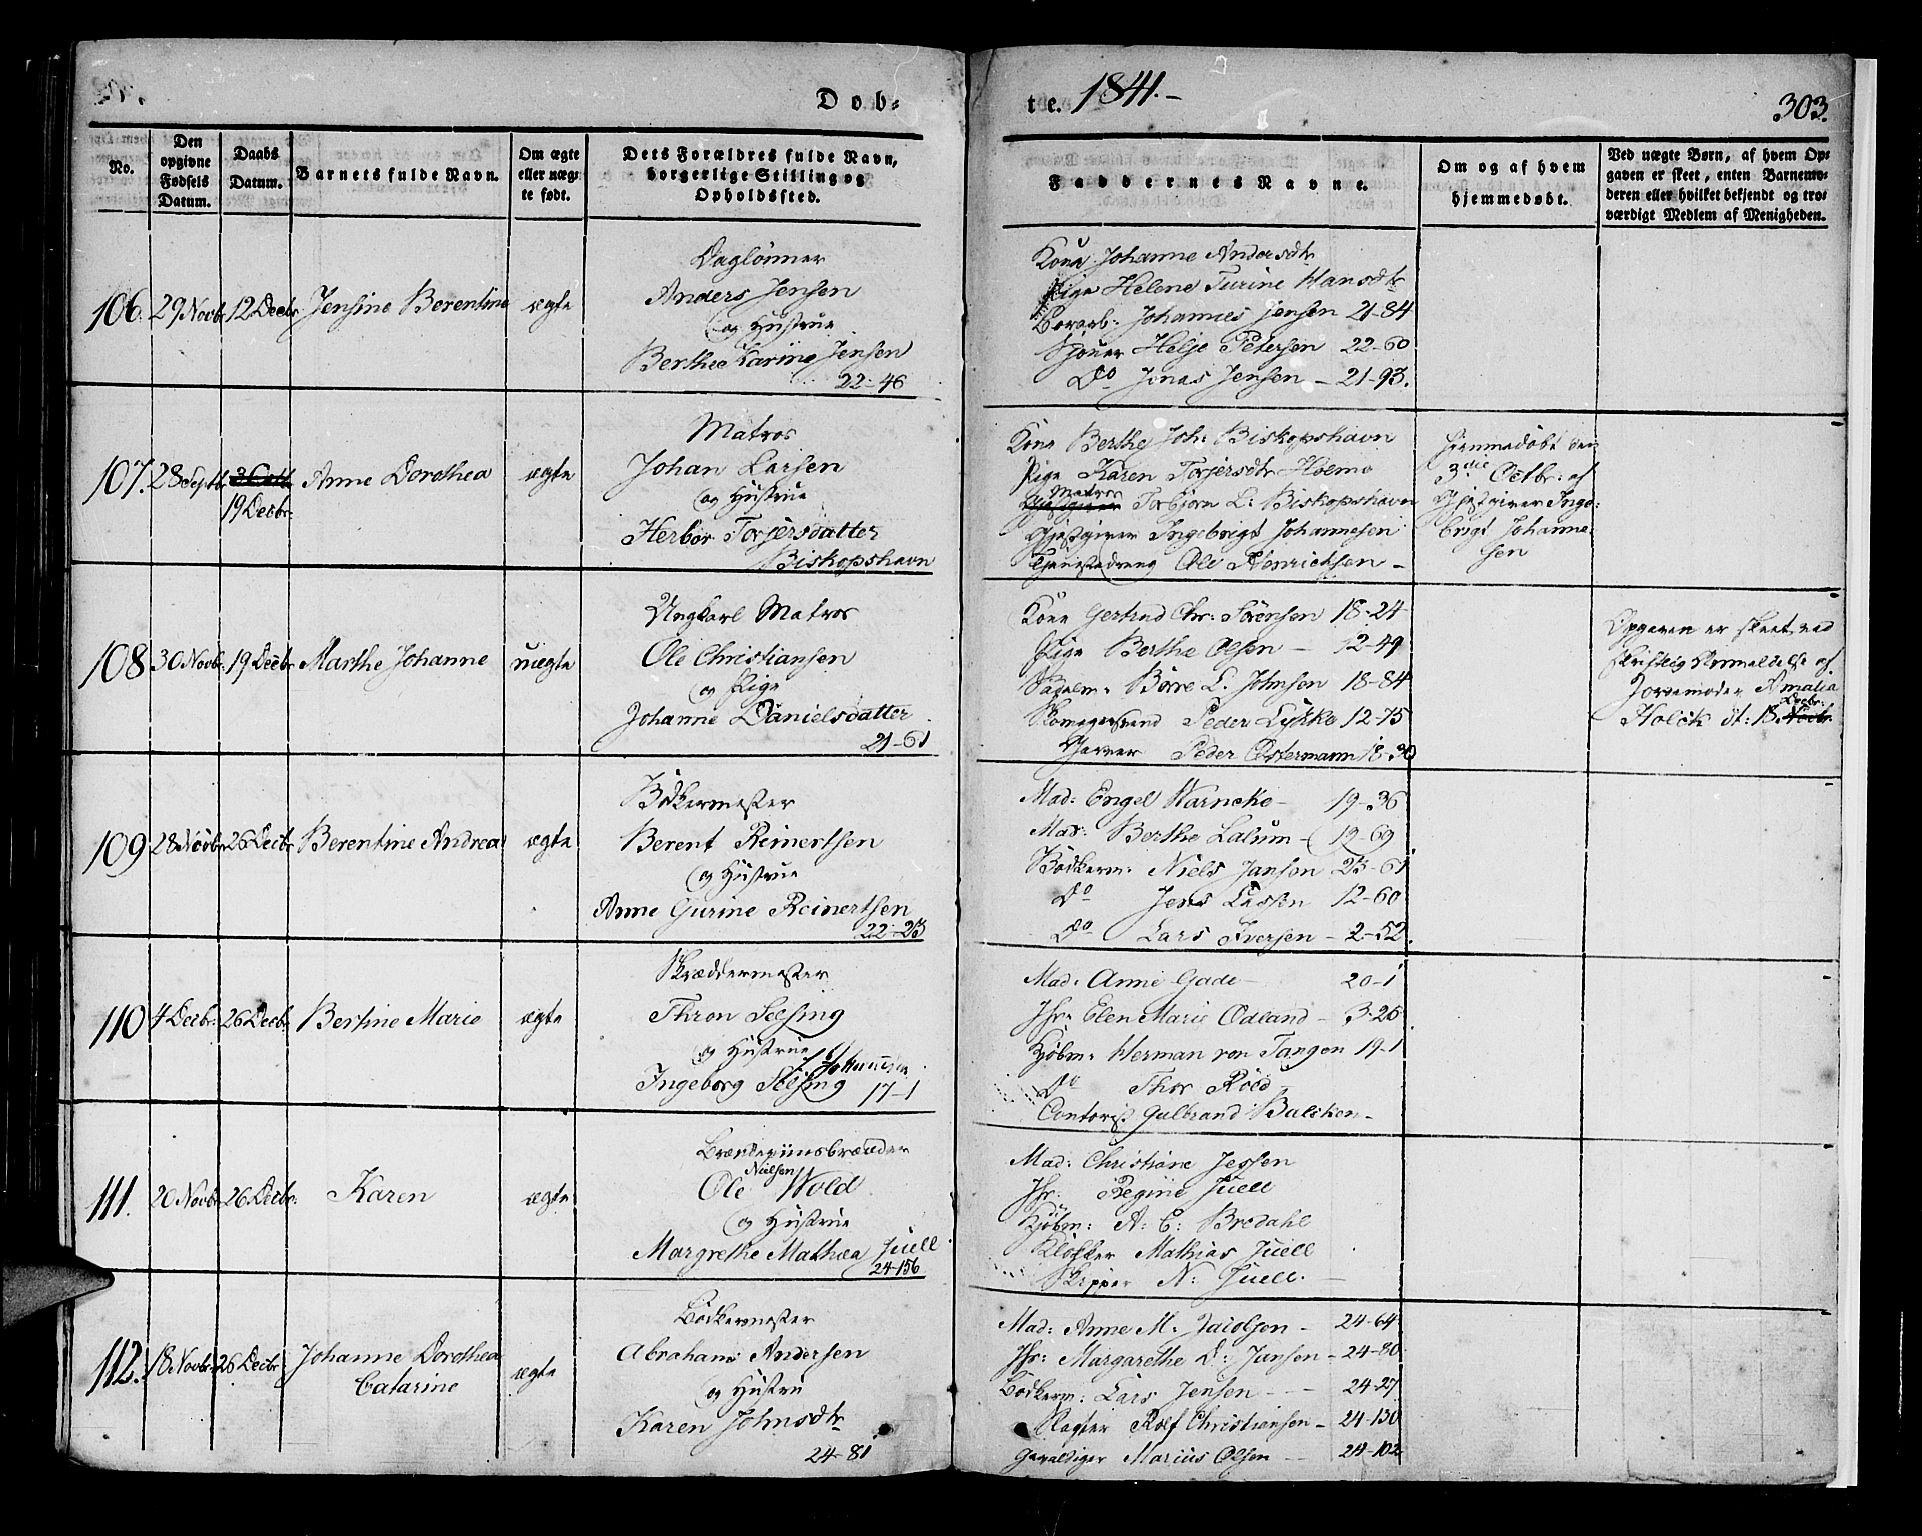 Døb-
te. 1841.-
303.
No.
Den
opgivne
Fødsels
Datum.
Daabs
Datum.
Barnets fulde Navn.
Om ægte
eller uæg-
te født.
Dets Forældres fulde Navn,
borgerlige Stilling og
Opholdssted.
Faddernes Navne.
Om og af hvem
hjemmedøbt.
Ved uægte Børn, af hvem Op-
gaven er skeet, enten Barnemo-
deren eller hvilket bekjendt og tro-
værdigt Medlem af Menigheden.
106. 29 Novbr 12 Decbr Jensine Berentine ægte
Daglønner
Anders Jensen
og Hustrue
Berthe Karine Jensen
22-46
Kone Johanne Andersdtr
Pige Helene Turine Hansdtr
Borarb: Johannes Jensen 21-84
Sjouer Helje Petersen 22-60
Do Jonas Jensen - 21-93.
107. 28 Septbr 3 Octbr Anne Dorothea ægte
19 Decbr:
Matros
Johan Larsen
og Hustrue
Herbor Torjersdatter
Biskopshavn
Kone Berthe Joh: Biskopshavn
Pige Karen Torjersdtr Hoemo
Matros
Torbjørn L: Biskopshavn
Gjestgiver Ingebrigt Johannesen
Tjenestedreng Ole Henrichsen -
Hjemmedøbt den
3die Octbr: af
Gjestgiver Inge-
brigt Johanne-
sen
108 30 Novbr: 19 Decbr Marthe Johanne uægte
Ungkarl Matros
Ole Christiansen
og Pige
Johanne Danielsdatter
21-61
Kone Gertrud Chr: Sørensen 18-24
Pige Berthe Olsen - 12-49
Sadelm: Børre L. Johnsen 18-84
Skomagersvend Peder Lykke 12-75
Garver Peder Ostermann 18-30
Opgaven er skeet ved
skriftlig Anmeldelse af
Jordemoder Amalia
Decbr:
Holck dt: 18 Novbr.
109 28 Novbr 26 Decbr Berentine Andrea ægte
Bødkermester
Berent Reinertsen
og Hustrue
Anne Gurine Reinertsen
22-23
Mad: Engel Warncke - 19-36
Mad: Berthe Lalum - 19-69
Bødkerm: Niels Jansen 23-61
Do Jens Lassen 12-60
Do Lars Iversen - 2-52.
110 4 Decbr: 26 Decbr: Bertine Marie ægte
Skræddermester
Thron Selsing
og Hustrue
Johannesen
Ingeborg Selsing 17-1
Mad: Anne Gade - 20-1
Jfr: Elen Marie Odland - 3-25
Kjøbm: Herman von Tangen 19-1
Do Thor Roed
Contorist Gulbrand Balchen -
111. 20 Novbr 26 Decbr: Karen ægte
Brændeviinsbrænder
Nielsen
Ole Wold
og Hustrue
Margrethe Mathea Juell
24-156
Mad: Christiane Jessen
Jfr: Regine Juell
Kjøbm: A: C: Bredahl
Klokker Mathias Juell
Skipper N: Juell.
112. 18 Novbr 26 Decbr: Johanne Dorothea ægte
Catarine
Bødkermester
Abraham Andersen
og Hustru
Karen Johnsdtr
24-81
Mad: Anne M. Jacobsen - 24-64
Jfr: Margarethe D: Jansen - 24-80
Bødkerm: Lars Jensen - - 24-27
Slagter Rolf Christiansen - 24-130
Gevaldiger Marius Olsen - - 24-102